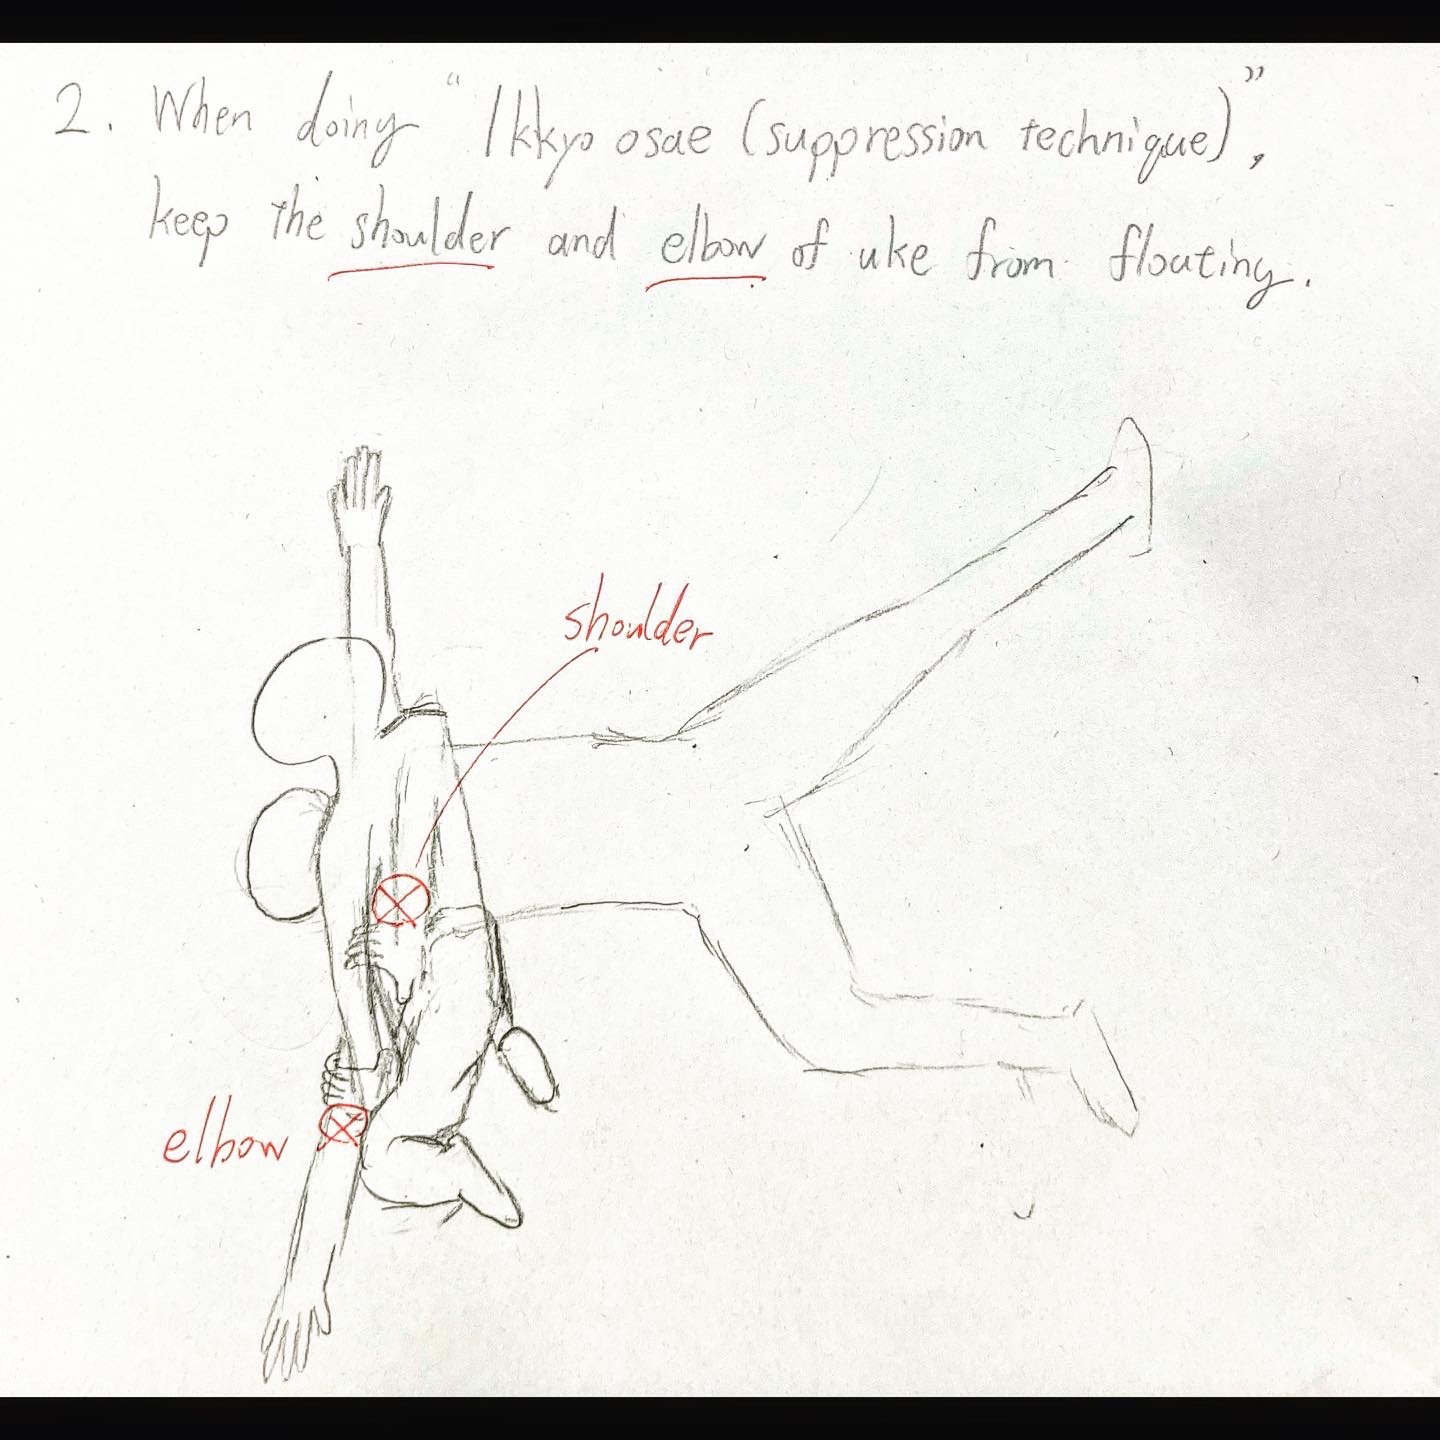 2. When doing "Ikkyo osae (suppression technique)",
keep the shoulder and elbow of uke from floating.
shoulder
elbow